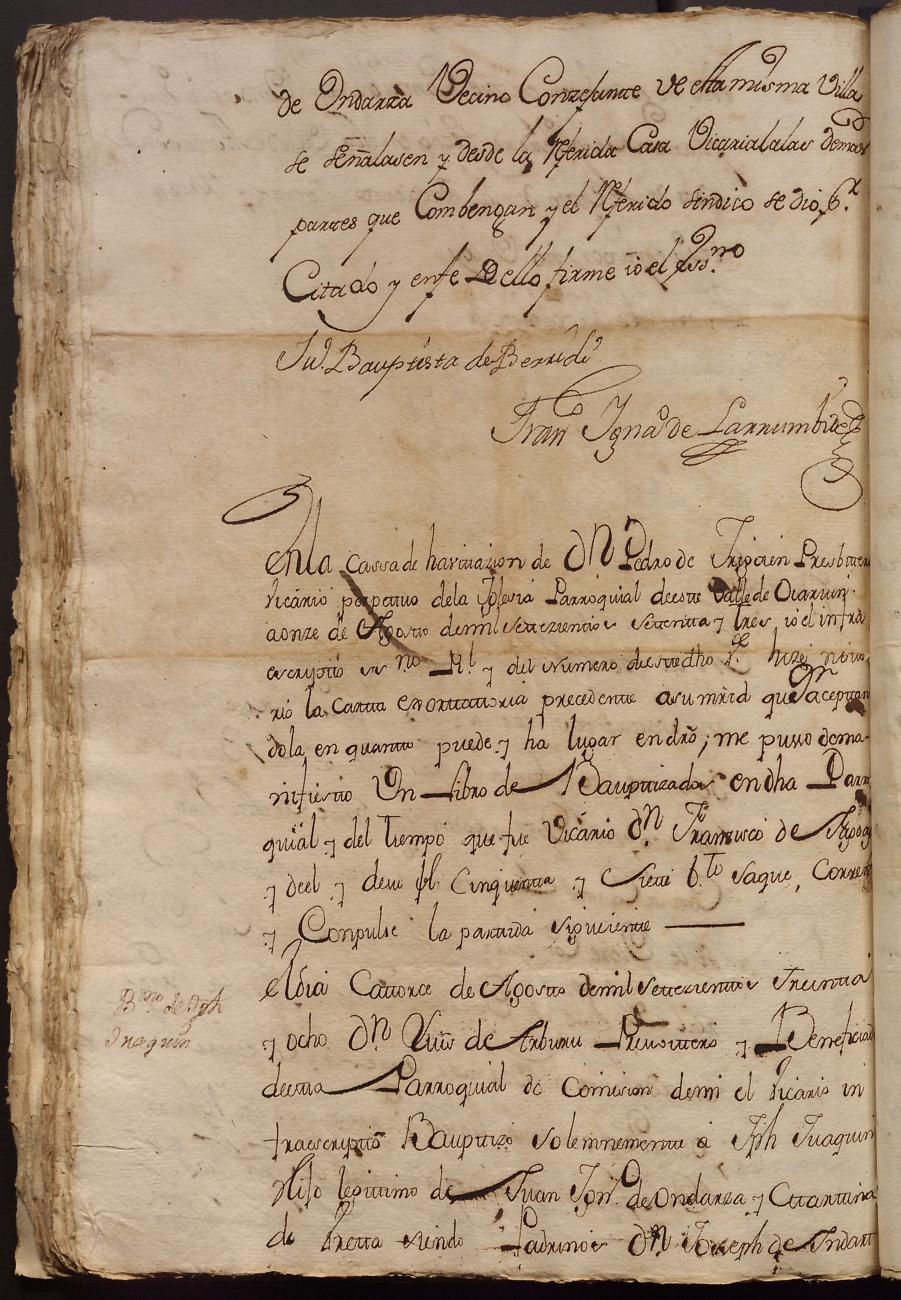 de Ondarza Vecino Conzejante de esta misma Villa
se señalasen y desde la Referida Casa Vicarial a las demas
partes que Combengan y el Referido sindico se dio p.r
Citado y en fe dello firme io el ess.no
Ju.n Bauptista de Berridi
Fran.co Igna.o de Larrumbide
En la cassa de havitazion de Dn Pedro de Presbitero
Vicario perpetuo de la Iglesia Parroquial de este Valle de Oiarzun
a onze de Agosto de mil settezientos settenta y tres, io el infra
escripto ess.no Rl y del Numero de este dho Ve hize notto
rio la Cartta exorttattoria precedente a su mrd que aceptan
dola en quantto puede y ha lugar en dro, me pusso de ma-
nifiesto Un Libro de Bauptizados en dha Parro
quial y del tiempo que fue Vicario Dn Francisco de
y de el y de su fol. Cinquenta y Siette b.to saque, Correxi
y Conpulse la partida siguiente
B.mo de Jph
Juaquin
el dia Cattorce de Agosto de mil settezientos Treinta
y ocho Dn Luis de Arburu Presvittero y Beneficiado
de esta Parroquial de Comision de mi el Vicario in
fraescriptto Bauptizo solemnementte a Jph Juaquin
Hijo legittimo de Juan Ign.o de Ondarza y Cattarina
de siendo Padrinos Dn Joseph de Indart